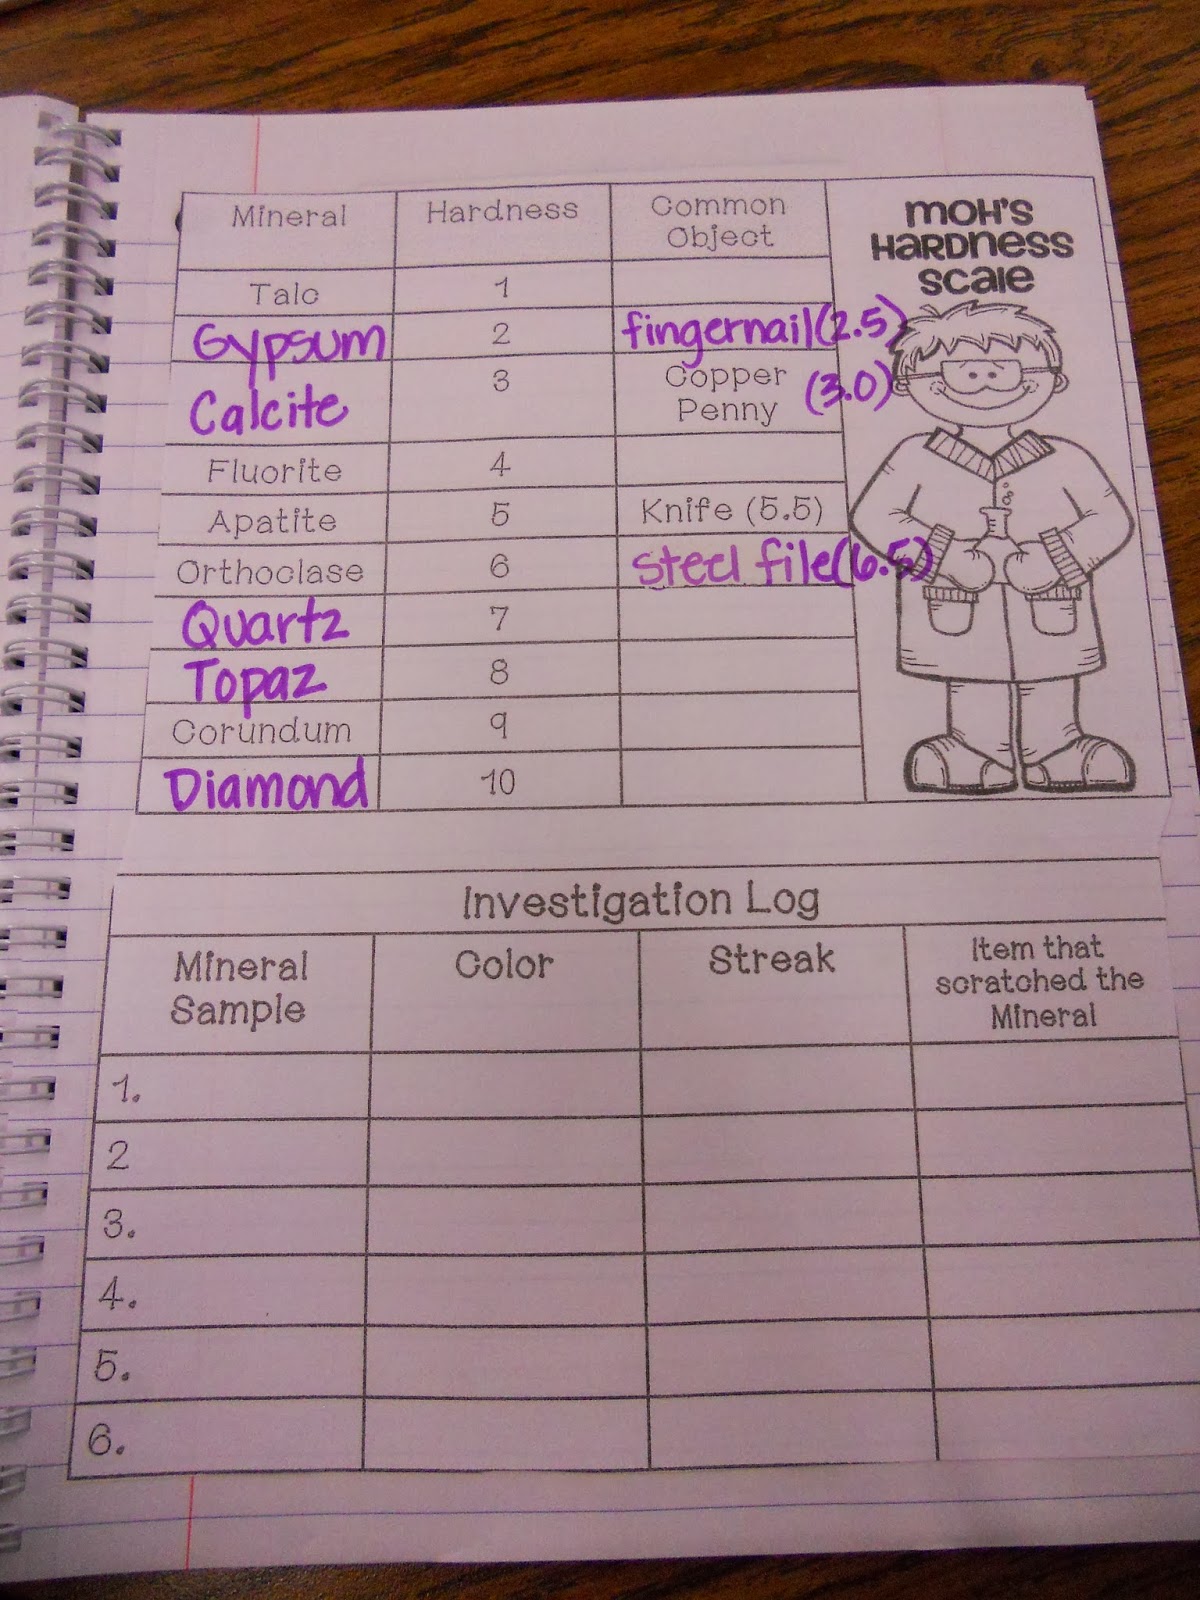 Mineral Hardness Common Object
MOH'S
HARDNESS
SCALE
Talc 1
Gypsum 2 fingernail (2.5)
Calcite 3 Copper Penny (3.0)
Fluorite 4
Apatite 5 Knife (5.5)
Orthoclase 6 steel file (6.5)
Quartz 7
Topaz 8
Corundum 9
Diamond 10
Investigation Log
Mineral Sample Color Streak Item that scratched the Mineral
1.
2
3.
4.
5.
6.